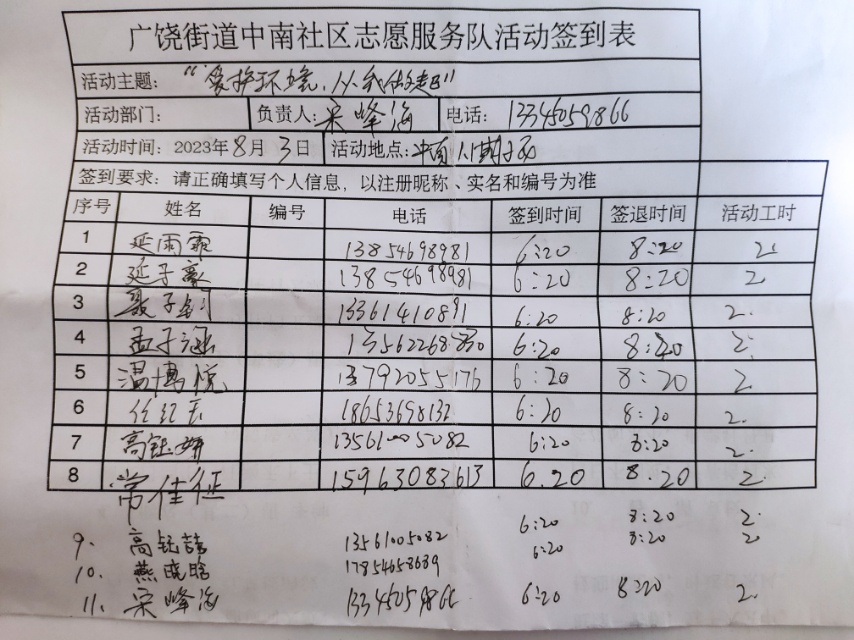 广饶街道中南社区志愿服务队活动签到表
活动主题：“爱护环境，从我做起”
活动部门： 负责人：宋峰海 电话：13345059866
活动时间：2023年8月3日 活动地点：中南
签到要求：请正确填写个人信息，以注册昵称、实名和编号为准
序号 姓名 编号 电话 签到时间 签退时间 活动工时
1 延雨霏 13854698981 6:20 8:20 2
2 延子豪 13854698981 6:20 8:20 2
3 聂子钊 13361410891 6:20 8:20 2.
4 孟子涵 6:20 8:20 2.
5 温博悦 13792055176 6:20 8:20 2
6 任红玉 18653698132 6:20 8:20 2.
7 高钰妍 13561005082 6:20 8:20 2.
8 常佳征 15963083613 6.20 8.20 2
6:20 8:20 2.
9. 高钰喆 13561005082 6:20 8:20 2
10. 燕晓晗 17854658689
11. 宋峰海 13345059866 6:20 8:20 2.